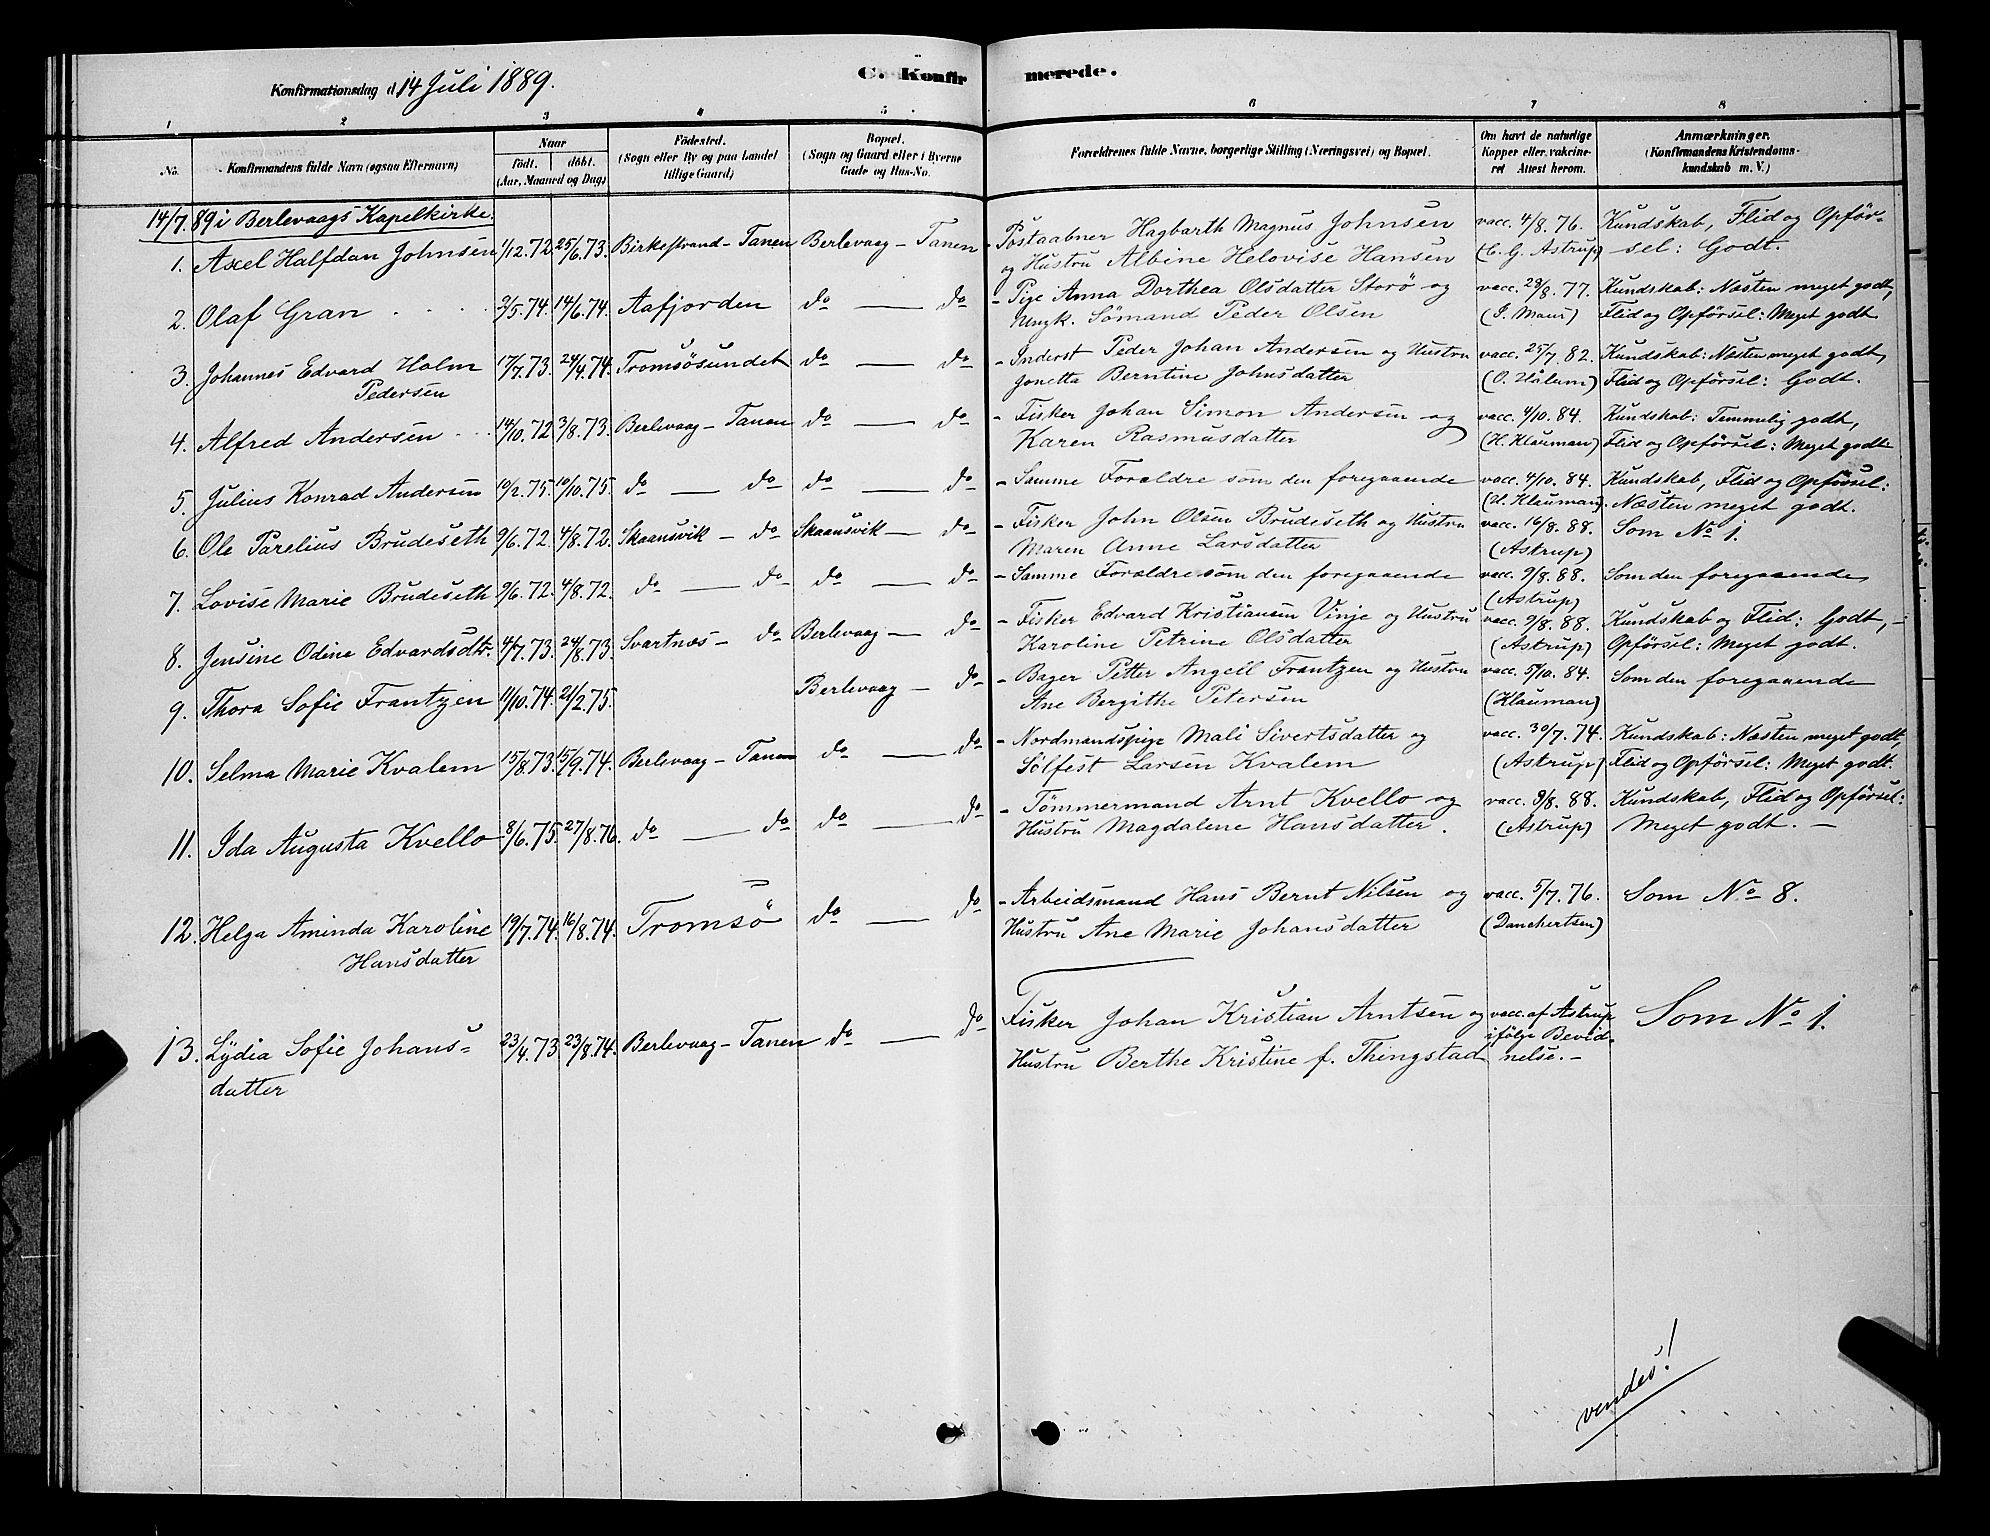 C. Konfirmerede.
Konfirmationsdag d. 14 Juli 1889.
1 2 3 4 5 6 7 8
No. Konfirmandens fulde Navn (ogsaa Efternavn) Naar födt. döbt. (Aar, Maaned og Dag) Födested. (Sogn eller By og paa Landet tillige Gaard) Bopæl. (Sogn og Gaard eller i Byerne Gade og Hus-No. Forældrenes fulde Navne, borgerlige Stilling (Næringsvei) og Bopæl. Om havt de naturlige Kopper eller vakcineret Attest herom. Anmærkninger. (Konfirmandens Kristendomskundskab m. V.)
14/7 89 i Berlevaags Kapelkirke.
1. Axel Halfdan Johnsen 1/12.72. 25/6.73. Birkestrand - Tanen Berlevaag - Tanen - Postaabner Hagbarth Magnus Johnsen vacc. 4/8.76. Kundskab, Flid og Opför-
og Hustru Albine Helovise Hansen (C. G. Astrup) sel: Godt.
2. Olaf Gran 2/5.74. 14/6.74. Aafjorden do — do - Pige Anna Dorthea Olsdatter Storö og vacc. 28/8.77. Kundskab: Næsten meget godt,
Ungk. Sömand Peder Olsen Flid og Opförsel: Meget godt
3. Johannes Edvard Holm 17/7.73. 24/4.74. Tromsösundet do — do - Inderst Peder Johan Andersen og Hustru vacc. 25/7.82. Kundskab: Næsten meget godt,
Pedersen Jonetta Berntine Johnsdatter (O. Hålum) Flid og Opförsel: Godt.
4. Alfred Andersen 14/10.72 3/8.73. Berlevaag - Tanen do — do - Fisker Johan Simon Andersen og vacc. 4/10.84. Kundskab: Temmelig godt,
Karen Rasmusdatter (H. Klauman) Flid og Opförsel: Meget godt
5. Julius Konrad Andersen 19/2.75. 10/10.75. do — do do — do - Samme Forældre som den foregaaende vacc. 4/10.84. Kundskab, Flid og Opförsel:
(H. Klauman) Næsten meget godt.
6. Ole Parelius Brudeseth 9/6.72. 4/8.72. Skaansvik - do Skaansvik - do - Fisker John Olsen Brudeseth og Hustru vacc. 16/8.88. Som No 1.
Maren Anne Larsdatter (Astrup)
7. Lovise Marie Brudeseth 9/6.72. 4/8.72. do — do do — do - Samme Forældre som den foregaaende vacc. 9/8.88. Som den foregaaende
(Astrup)
8. Jensine Odine Edvardsdtr. 4/7.73. 24/8.73. Svartnæs - do Berlevaag - do - Fisker Edvard Kristiansen Vinje og Hustru vacc. 9/8.88. Kundskab og Flid: Godt, -
Karoline Petrine Olsdatter (Astrup) Opförsel: Meget godt.
9. Thora Sofie Frantzen 11/10.74. 21/2.75. Berlevaag - do - Bager Petter Angell Frantzen og Hustru vacc. 5/10.84. Som den foregaaende
Ane Bergithe Petersen (Klauman)
10. Selma Marie Kvalem 15/8.73. 15/9.74. Berlevaag - Tanen do — do - Nordmandspige Mali Sivertsdatter og vacc. 30/7.74. Kundskab: Næsten meget godt,
Sölfest Larsen Kvalem (Astrup) Flid og Opförsel: Meget godt.
11. Ida Augusta Kvello 8/6.75. 27/8.76. do — do do — do - Tömmermand Arnt Kvello og vacc. 9/8.88. Kundskab, Flid og Opförsel:
Hustru Magdalene Hansdatter. (Astrup) Meget godt. -
12. Helga Aminda Karoline 19/7.74. 16/8.74. Tromsö do — do - Arbeidsmand Hans Bernt Nilsen og vacc. 5/7.76. Som No 8.
Hansdatter Hustru Ane Marie Johansdatter (Danchertsen)
13. Lydia Sofie Johans- 23/4.73 23/8.74. Berlevaag - Tanen do — do Fisker Johan Kristian Arntsen og vacc. af Astrup Som No 1.
datter Hustru Berthe Kristine f. Thingstad ifölge Bevid-
nelse. -
vendes!